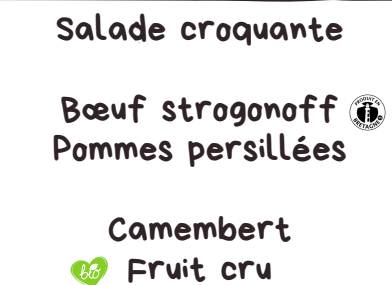 Salade croquante
Bœuf strogonoff
PRODUIT EN
BRETAGNE
Pommes persillées
Camembert
bio
Fruit cru